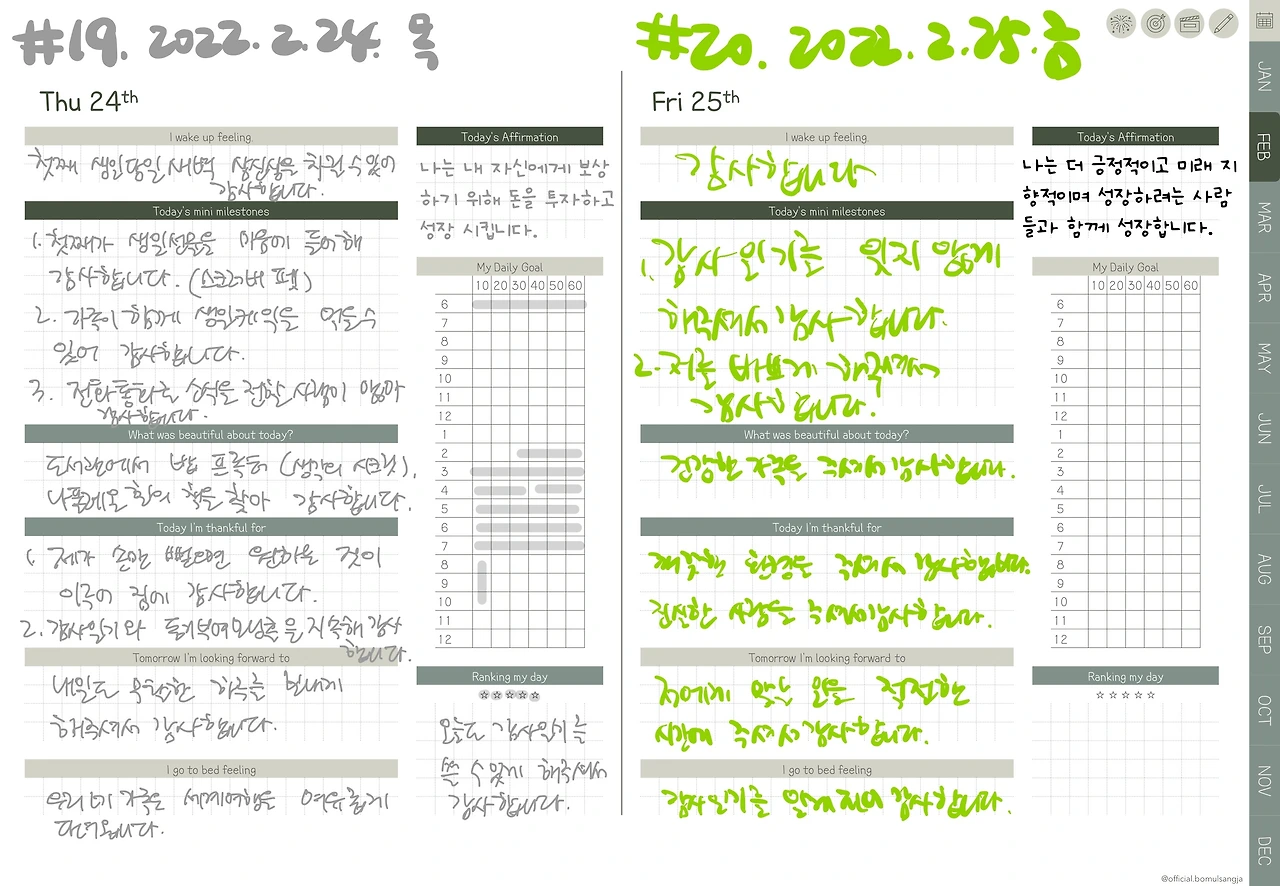 #19. 2022. 2. 24. 목
Thu 24th
I wake up feeling.
첫째 생일당일 새벽 생진상을 차릴 수 있어
감사합니다.
Today's mini milestones
1. 첫째가 생일선물을 마음에 들어해
감사합니다. (스크래버 펫)
2. 가족이 함께 생일케익을 먹을 수
있어 감사합니다.
3. 전화통화로 소식을 전할 사람이 많아
감사합니다.
What was beautiful about today?
도서관에서 밥 프록터 (생각의 시크릿),
나폴레온 힐의 책을 찾아 감사합니다.
Today I'm thankful for
1. 제가 손만 뻗으면 원하는 것이
이루어 짐에 감사합니다.
2. 감사일기와 동기부여모닝콜을 지속해 감사
합니다.
Tomorrow I'm looking forward to
내일도 무탈한 하루를 보내게
해주셔서 감사합니다.
I go to bed feeling
우리 네 가족은 세계여행을 여유롭게
다녀옵니다.
Today's Affirmation
나는 내 자신에게 보상
하기 위해 돈을 투자하고
성장 시킵니다.
My Daily Goal
10 20 30 40 50 60
6
7
8
9
10
11
12
1
2
3
4
5
6
7
8
9
10
11
12
Ranking my day
오늘도 감사일기를
쓸 수 있게 해주셔서
감사합니다.
#20. 2022. 2. 25. 금
Fri 25th
I wake up feeling.
감사합니다
Today's mini milestones
1. 감사일기를 잊지 않게
해주셔서 감사합니다.
2. 저를 바쁘게 해주셔서
감사합니다!
What was beautiful about today?
건강한 가족을 주셔서 감사합니다.
Today I'm thankful for
깨끗한 환경을 주셔서 감사합니다.
친절한 사람을 주셔서 감사합니다.
Tomorrow I'm looking forward to
저에게 맞는 일을 적절한
시간에 주셔서 감사합니다.
I go to bed feeling
감사일기를 알게되어 감사합니다.
Today's Affirmation
나는 더 긍정적이고 미래 지
향적이며 성장하려는 사람
들과 함께 성장합니다.
My Daily Goal
10 20 30 40 50 60
6
7
8
9
10
11
12
1
2
3
4
5
6
7
8
9
10
11
12
Ranking my day
JAN
FEB
MAR
APR
MAY
JUN
JUL
AUG
SEP
OCT
NOV
DEC
@official.bomulsangja